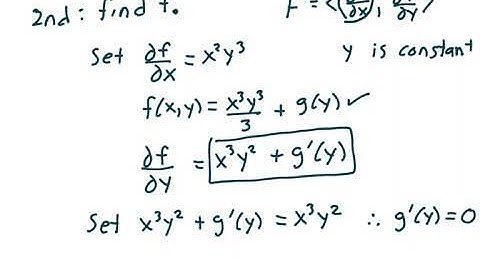 2nd: find f. F = <∂f/∂x, ∂f/∂y>
Set ∂f/∂x = x²y³ y is constant
f(x,y) = x³y³/3 + g(y) ✓
∂f/∂y = x³y² + g'(y)
Set x³y² + g'(y) = x³y² ∴ g'(y) = 0